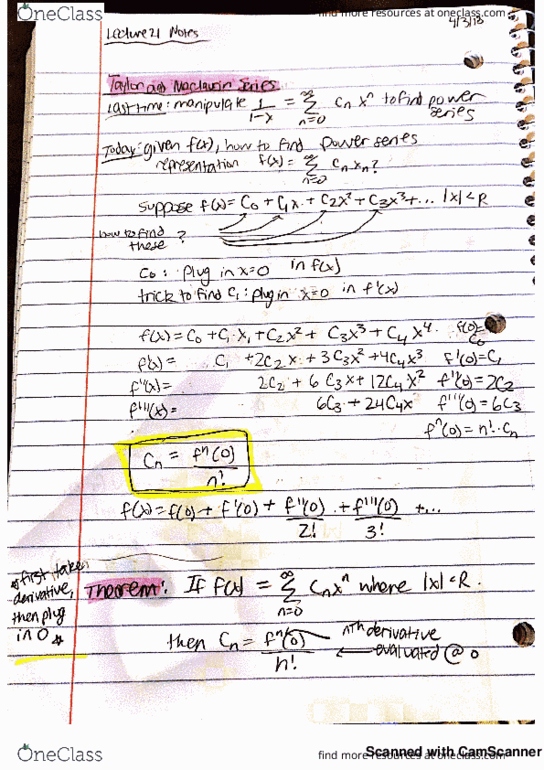 OneClass
find more resources at oneclass.com
4/3/18
Lecture 21 Notes
Taylor and Maclaurin Series
Last time: manipulate 1/(1-x) = ∞Σn=0 cn x^n to find power series
Today: given f(x), how to find power series
representation f(x) = ∞Σn=0 cn xn?
suppose f(x) = C0 + C1x + C2x² + C3x³ + ... |x| < R
how to find these ?
C0: plug in x=0 in f(x)
trick to find C1: plug in x=0 in f'(x)
f(x) = C0 + C1·x1 + C2x² + C3x³ + C4x⁴ f(0)= C0
f'(x) = C1 + 2C2x + 3C3x² + 4C4x³ f'(0)=C1
f''(x) = 2C2 + 6C3x + 12C4x² f''(0)=2C2
f'''(x) = 6C3 + 24C4x f'''(0)=6C3
f^n(0) = n!·Cn
Cn = f^n(0)/n!
f(x) = f(0) + f'(0) + f''(0)/2! + f'''(0)/3! + ...
*first taken derivative, then plug in 0*
Theorem: If f(x) = ∞Σn=0 Cnx^n where |x| < R.
then Cn = f^n(0)/n! nth derivative evaluated @ 0
OneClass
find more resources at oneclass.com
Scanned with CamScanner